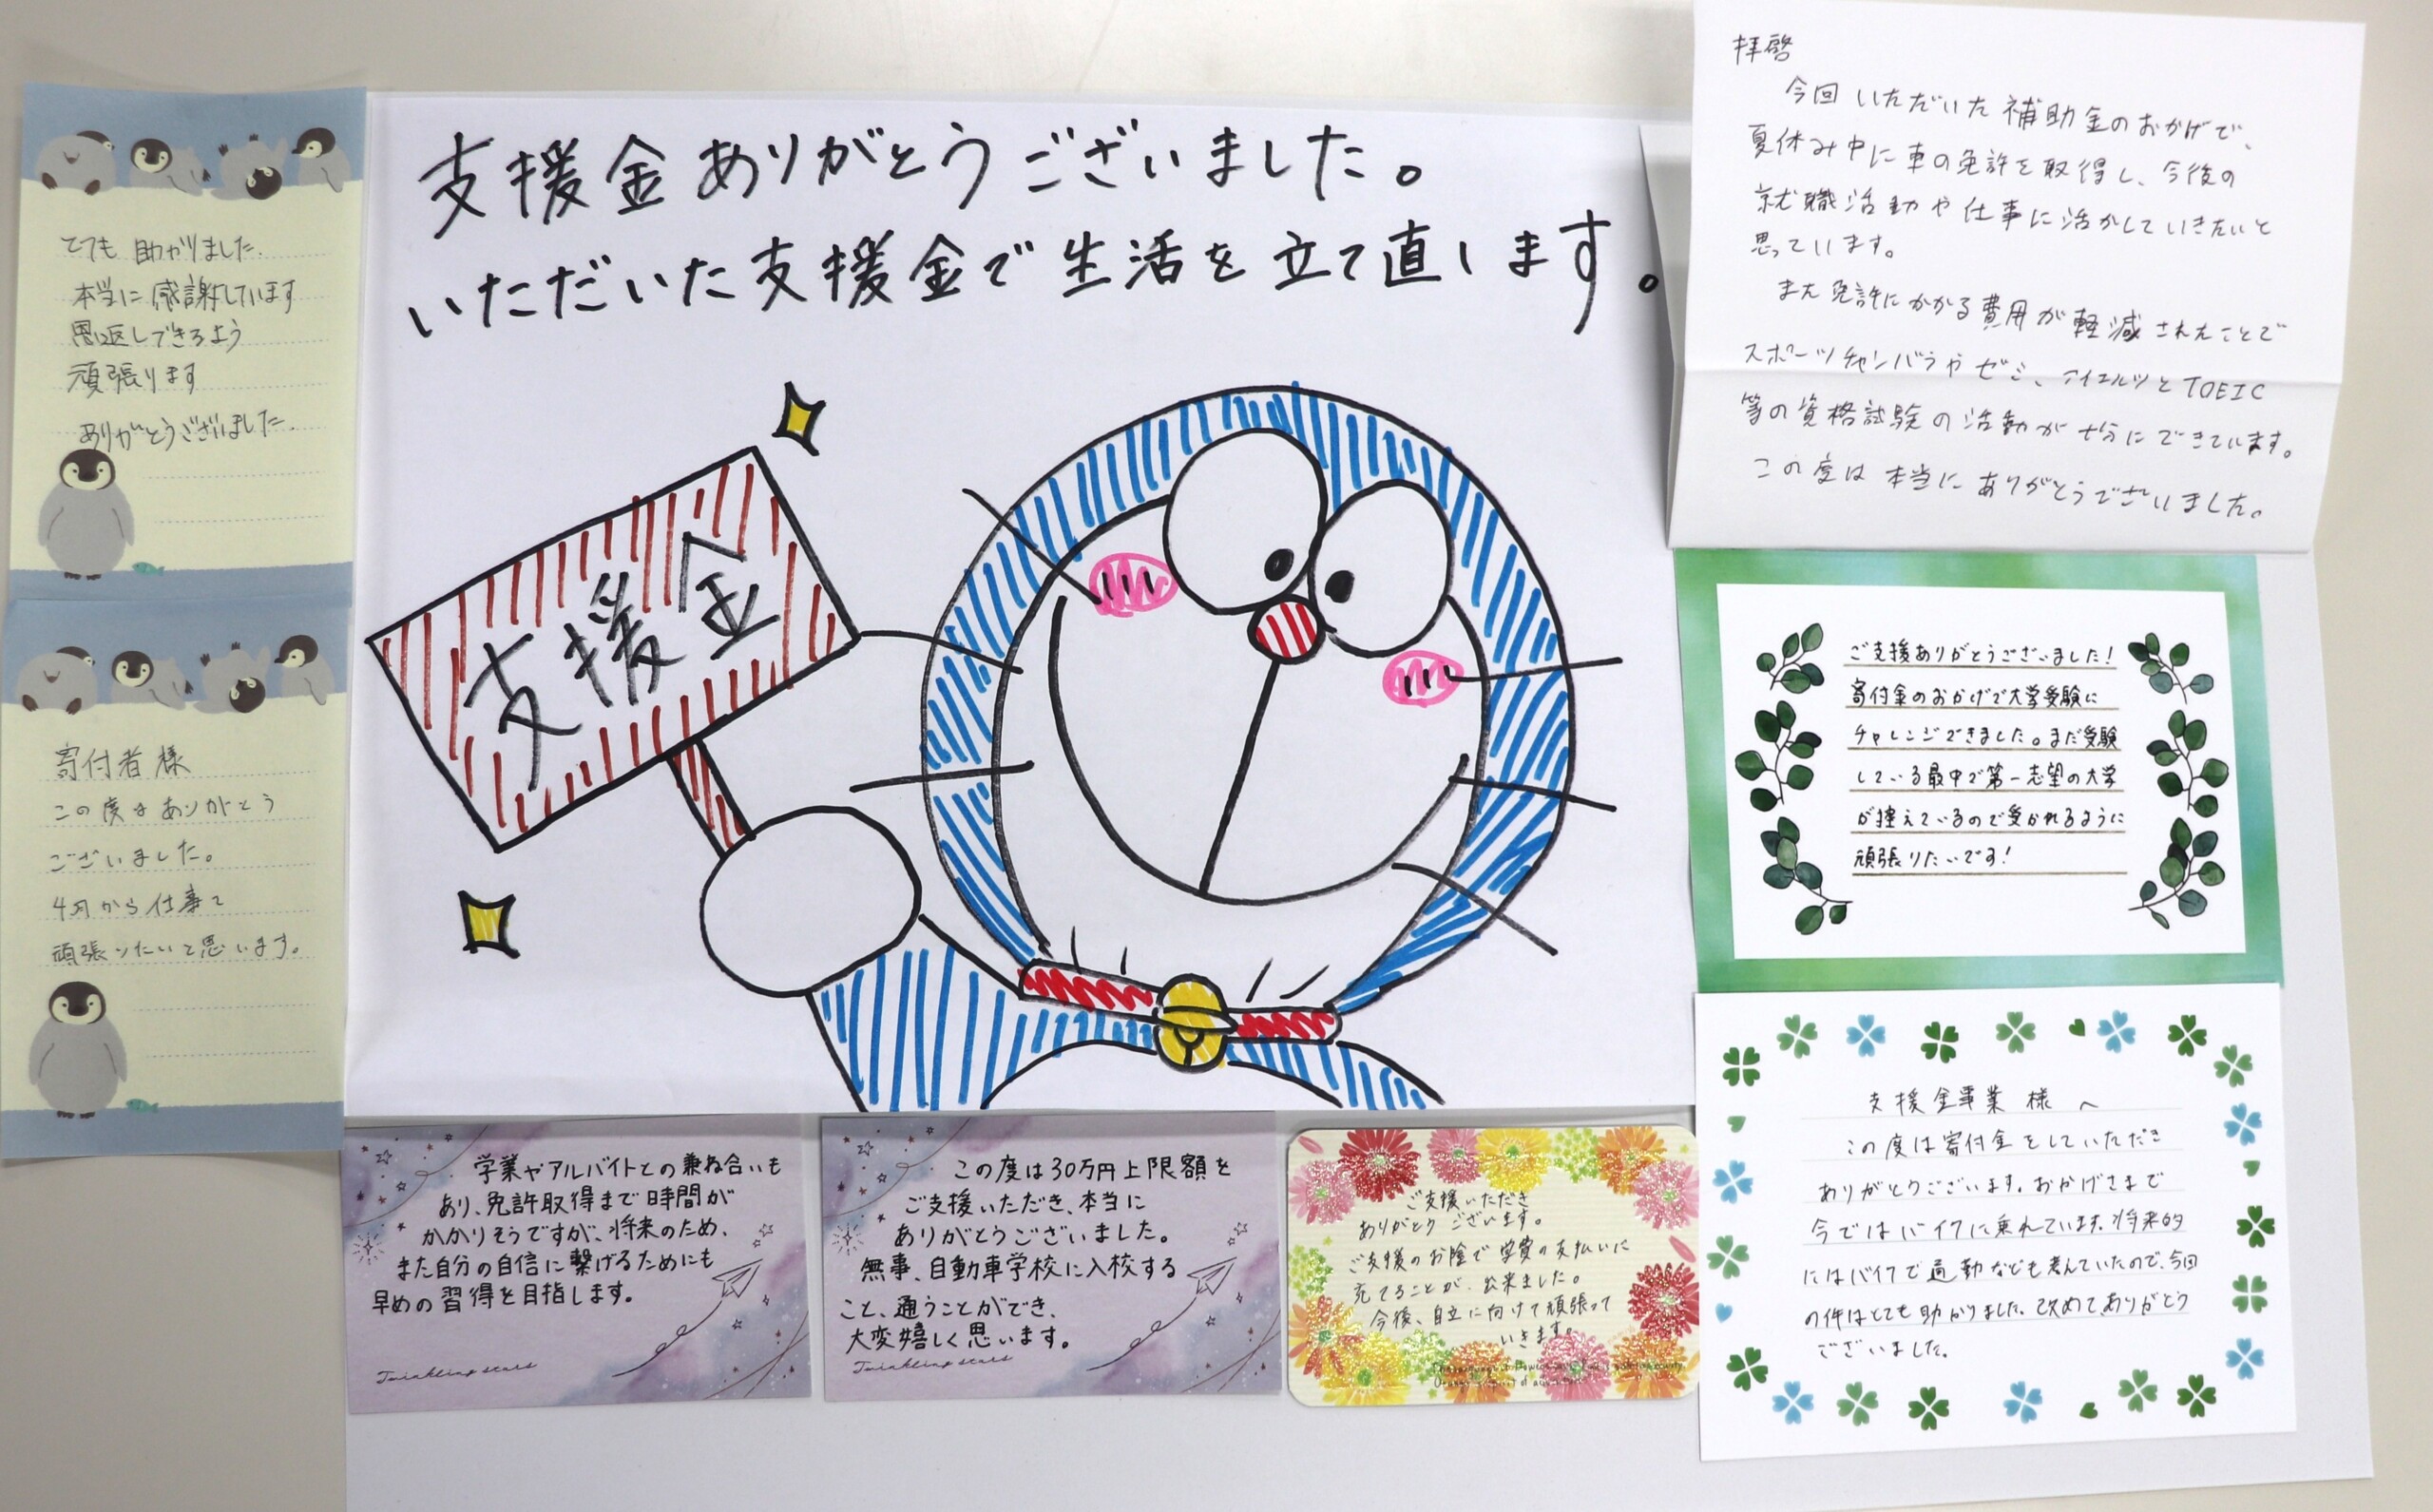 とても助かりました.
本当に感謝しています
恩返しできるよう
頑張ります
ありがとうございました.
寄付者様
この度はありがとう
ございました。
4月から仕事で
頑張りたいと思います。
支援金ありがとうございました。
いただいた支援金で生活を立て直します。
支援金
拝啓
今回いただいた補助金のおかげで、
夏休み中に車の免許を取得し、今後の
就職活動や仕事に活かしていきたいと
思っています。
また免許にかかる費用が軽減されたことで
スポーツチャンバラやゼミ、アイエルツとTOEIC
等の資格試験の活動が十分にできています。
この度は本当にありがとうございました。
ご支援ありがとうございました!
寄付金のおかげで大学受験に
チャレンジできました。まだ受験
している最中で第一志望の大学
が控えているので受かれるように
頑張りたいです!
支援金事業様へ
この度は寄付金をしていただき
ありがとうございます。おかげさまで
今ではバイクに乗れています。将来的
にはバイクで通勤なども考えていたので、今回
の件はとても助かりました。改めてありがとう
ございました。
学業やアルバイトとの兼ね合いも
あり、免許取得まで時間が
かかりそうですが、将来のため、
また自分の自信に繋げるためにも
早めの習得を目指します。
Twinkling stars
この度は30万円上限額を
ご支援いただき、本当に
ありがとうございました。
無事、自動車学校に入校する
こと、通うことができ、
大変嬉しく思います。
Twinkling stars
ご支援いただき
ありがとうございます。
ご支援のお陰で学費の支払いに
充てることが、出来ました。
今後、自立に向けて頑張って
いきます。